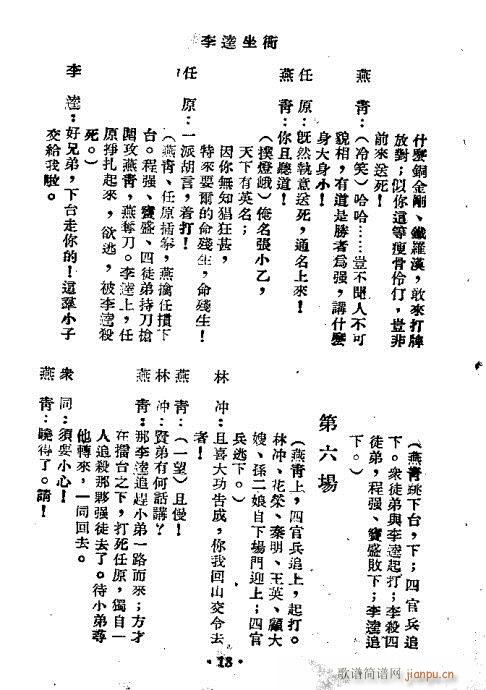 李逵坐衙
什麽銅金剛、鐵羅漢，敢來打牌
放對；似你這等瘦骨伶仃，豈非
前來送死！
燕青：（冷笑）哈哈……豈不聞人不可
貌相，有道是勝者爲强，講什麽
身大身小！
任原：旣然執意送死，通名上來！
燕青：你且聽道！
（撲燈蛾）俺名張小乙，
天下有英名；
因你無知猖狂甚，
特來要爾的命殘生，命殘生！
任原：一派胡言，着打！
（燕青、任原插幕，燕擒任摜下
台。程强、寶盛、四徒弟持刀槍
圍攻燕青，燕奪刀。李逵上，任
原掙扎起來，欲逃，被李逵殺
死。）
李逵：好兄弟，下台走你的！這羣小子
交給我啦。
（燕青跳下台，下；四官兵追
下。衆徒弟與李逵起打；李殺四
徒弟，程强、寶盛敗下；李逵追
下。）
第六場
（燕青上，四官兵追上，起打。
林冲、花榮、秦明、王英、顧大
嫂、孫二娘自下塲門迎上；四官
兵逃下。）
林冲：且喜大功告成，你我回山交令去
者！
燕青：（一望）且慢！
林冲：賢弟有何話講？
燕青：那李逵追趕小弟一路而來；方才
在擂台之下，打死任原，獨自一
人追殺那夥强徒去了。待小弟尋
他轉來，一同回去。
衆同：須要小心！
燕青：曉得了。請！
·18·
歌谱简谱网
jianpu.cn